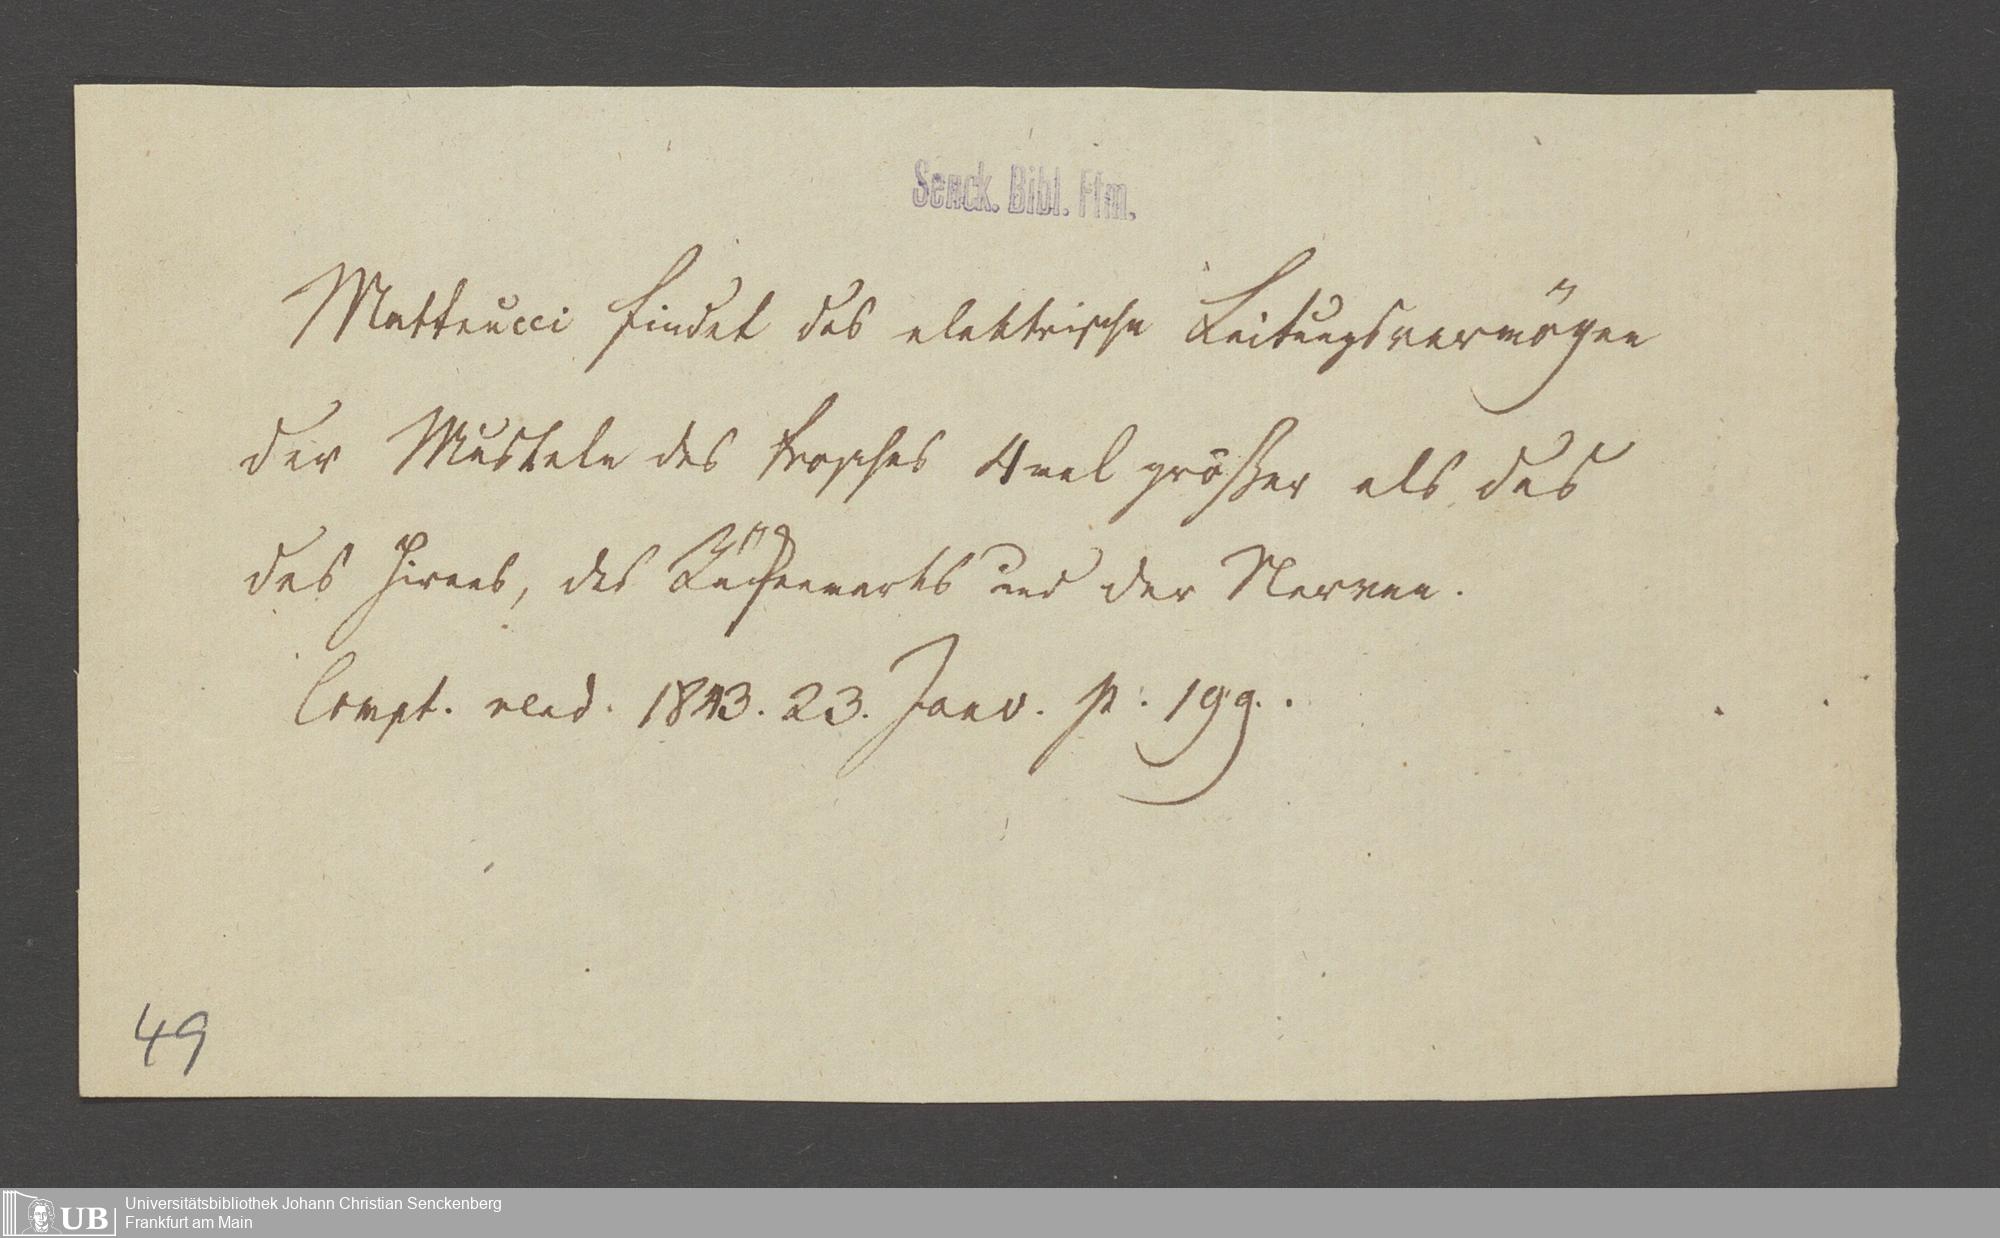 Senck. Bibl. Ffm.
Matteucci findet das elektrische Leitungsvermögen
der Muskeln des Frosches 4mal größer als das
des Hirnes, des Rückenmarks und der Nerven.
Compt. rend. 1843. 23. Janv. p. 199.
49
UB
Universitätsbibliothek Johann Christian Senckenberg
Frankfurt am Main